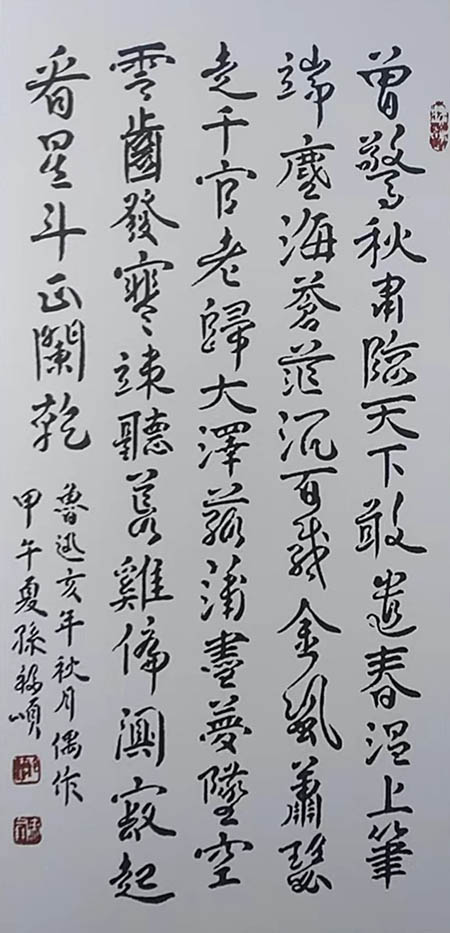 曾驚秋肅臨天下敢遣春温上筆
端塵海蒼茫沉百感金風蕭瑟
走千官老歸大澤菰蒲盡夢墜空
雲齒發寒竦聽荒雞偏闃寂起
看星斗正闌乾
魯迅亥年秋月偶作
甲午夏孫